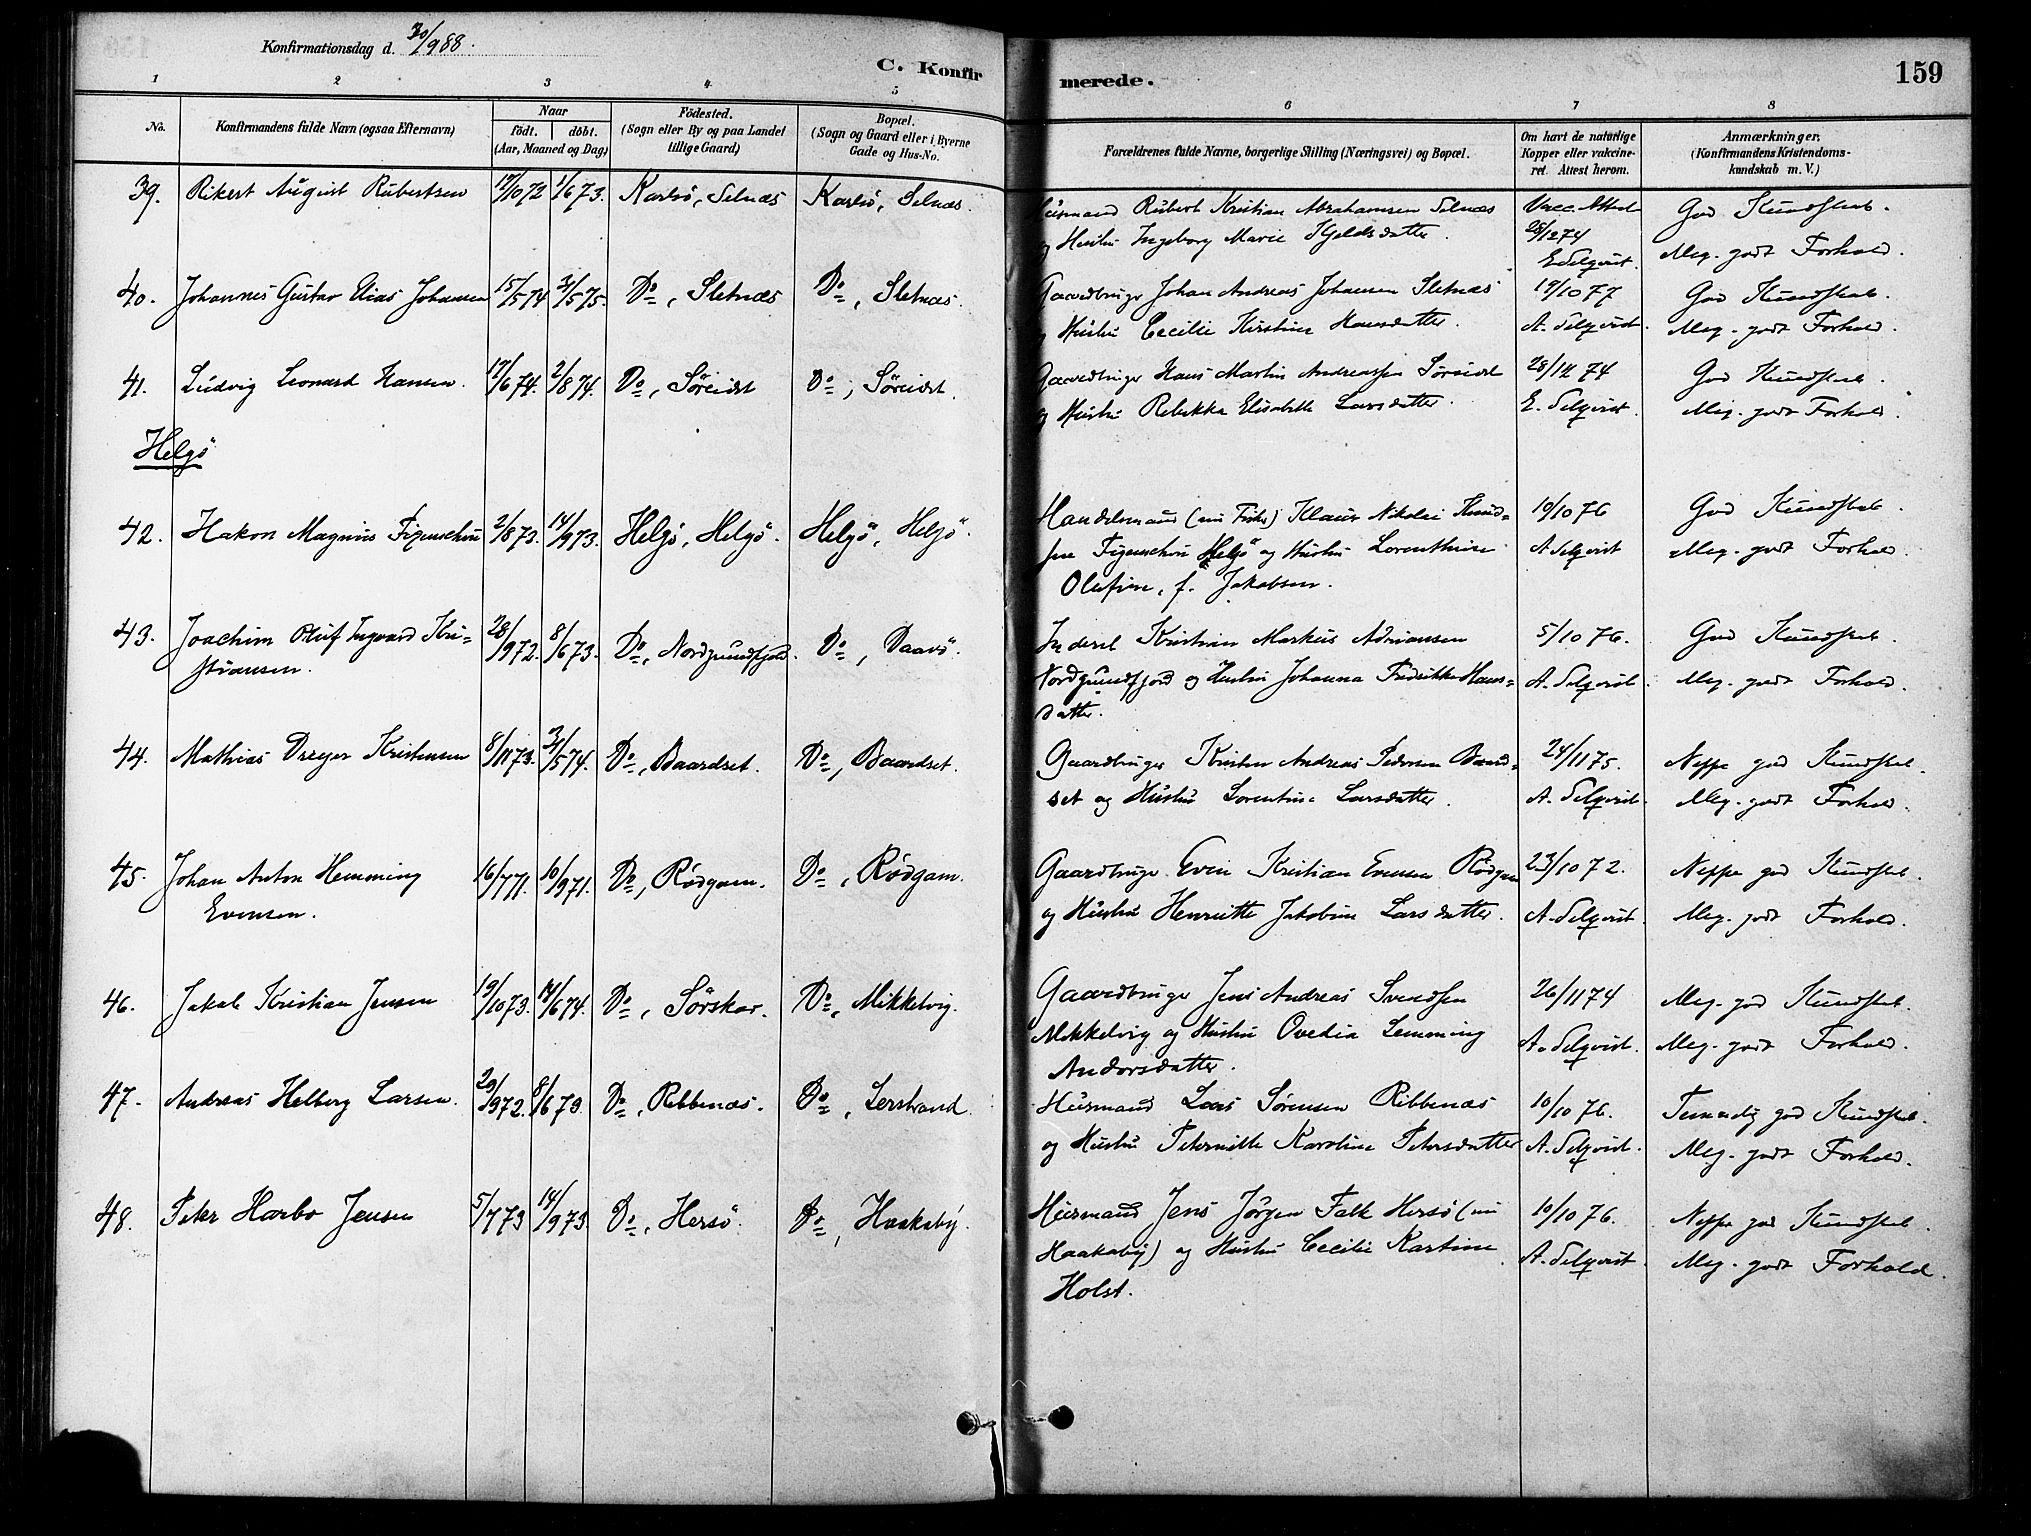 Konfirmationsdag d. 30/9 88.
C. Konfirmerede.
159
1 2 3 4 5 6 7 8
No.
Konfirmandens fulde Navn (ogsaa Efternavn)
Naar
födt. döbt.
(Aar, Maaned og Dag)
Födested.
(Sogn eller By og paa Landet
tillige Gaard)
Bopæl.
(Sogn og Gaard eller i Byerne
Gade og Hus-No.
Forældrenes fulde Navne, borgerlige Stilling (Næringsvei) og Bopæl.
Om havt de naturlige
Kopper eller vakcine-
ret. Attest herom.
Anmærkninger.
(Konfirmandens Kristendoms-
kundskab m. V.)
39. Rikert August Rubertsen 17/10 72 1/6 73. Karlsö, Selnæs Karlsö, Selnæs.
Husmand Rubert Kristian Abrahamsen Selnæs
og Hustru Ingeborg Marie Kjeldsdatter.
Vacc. Attest
28/2 74
E Selqvist.
God Kundskab.
Meg. godt Forhold.
40. Johannes Gustav Elias Johansen 15/5 74 31/5 75. Do, Sletnæs Do, Sletnæs.
Gaardbruger Johan Andreas Johansen Sletnæs
og Hustru Cecilie Kirstine Hansdatter.
19/10 77
A. Selqvist.
God Kundskab.
Meg. godt Forhold.
41. Ludvig Leonard Hansen. 17/6 74. 2/8 74. Do, Söreidet Do, Söreidet.
Gaardbruger Hans Martin Andreassen Söreidet
og Hustru Rebekka Elisabeth Larsdatter.
28/12 74
E. Selqvist.
God Kundskab.
Meg. godt Forhold.
Helgö
42. Hakon Magnus Figenschou 2/8 73. 14/9 73. Helgö, Helgö. Helgö, Helgö.
Handelsmand (nu Fisker) Klaus Nikolai Knud=
sen Figenschou Helgö og Hustru Lorenthine
Olufine, f. Jakobsen.
19/10 76
A Selqvist
God Kundskab.
Meg. godt Forhold.
43. Joachim Oluf Ingvard Kri-
stiansen.
28/9 72. 8/6 73. Do, Nordgrundfjord. Do, Daavö.
Inderst Kristian Markus Adriansen
Nordgrundfjord og Hustru Johanna Fredrikke Hans=
datter.
5/10 76.
A. Selqvist.
God Kundskab.
Meg. godt Forhold.
44. Mathias Dreyer Kristensen 8/11 73. 31/5 74. Do, Baardset. Do, Baardset.
Gaardbruger Kristen Andreas Pedersen Baard=
set og Hustru Lorentine Larsdatter.
24/11 75.
A. Selqvist.
Neppe god Kundskab.
Meg. godt Forhold.
45. Johan Anton Hemming
Evensen.
16/7 71. 10/9 71. Do, Rödgam. Do, Rödgam.
Gaardbruger Even Kristian Evensen Rödgam
og Hustru Henriette Jakobine Larsdatter.
23/10 72.
A. Selqvist.
Neppe god Kundskab.
Meg. godt Forhold.
46. Jakob Kristian Jensen 19/10 73. 14/6 74. Do, Sörskar. Do, Mikkelvig.
Gaardbruger Jens Andreas Svendsen
Mikkelvig og Hustru Ovedia Lemming
Andorsdatter.
26/11 74
A. Selqvist.
Meg. god Kundskab.
Meg. godt Forhold.
47. Andreas Helberg Larsen. 29/9 72. 8/6 73 Do, Ribbenæs. Do, Lerstrand.
Husmand Lars Sörensen Ribbenæs
og Hustru Peternelle Karoline Petersdatter
10/10 76.
A. Selqvist.
Temmelig god Kundskab.
Meg. godt Forhold.
48. Peter Harbo Jensen 5/7 73 14/9 73. Do, Hersö. Do, Haakaby.
Husmand Jens Jörgen Falk Hersö (nu
Haakaby) og Hustru Cecilie Kastine
Holst.
10/10 76.
A. Selqvist.
Neppe god Kundskab.
Meg. godt Forhold.